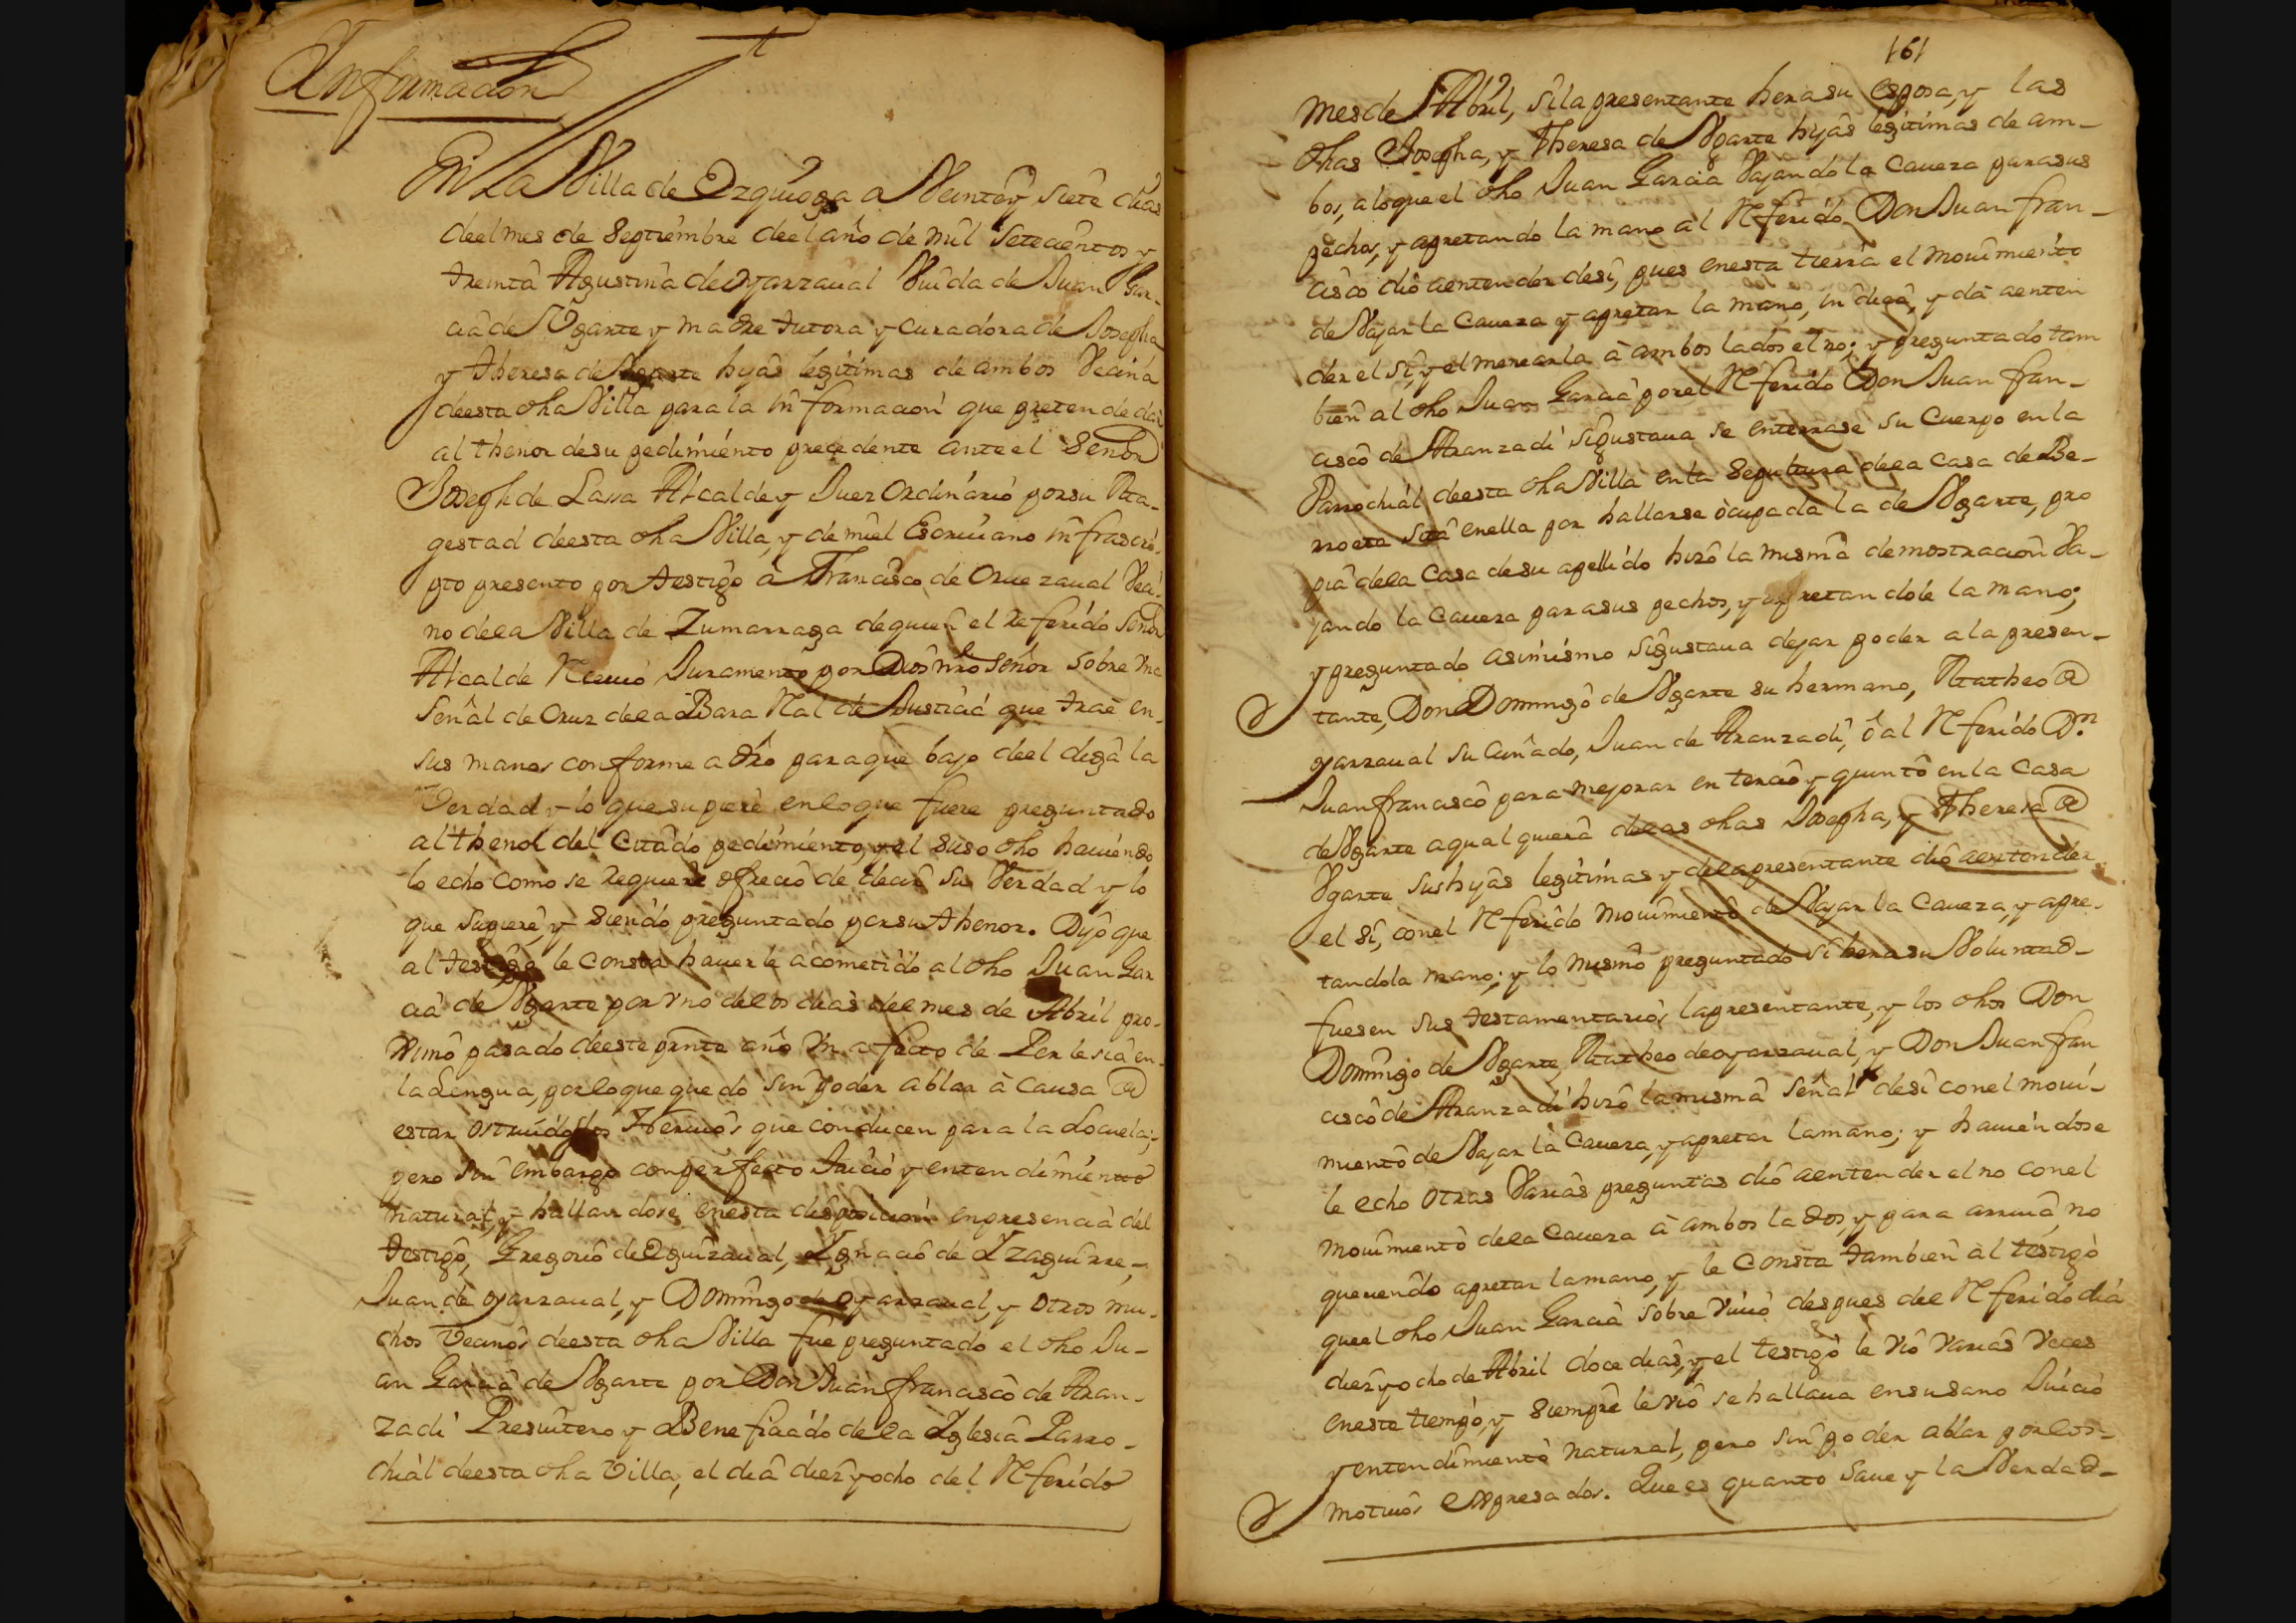 Informacion
En La Villa de Ezquioga a Veinte y siete dias
deel mes de Septiembre deel año de mil setecientos y
treinta Agustina de oyarzaual Viuda de Juan Gar-
cia de Vgarte y madre tutora y curadora de Josepha
y Theresa de Vgarte hijas legitimas de ambos Vecina
deesta dha Villa para la informacion que pretende dar
al thenor de su pedimiento precedente ante el Señor
Joseph de Lasa Alcalde y Juez Ordinario por su Ma-
gestad deesta dha Villa, y de mi el Escriuano infrascri-
pto presento por testigo à Francisco de Oruezaual Veci-
no dela Villa de Zumarraga de quien el referido Señor
Alcalde Reciuio Juramento por Dios nro Señor sobre vna
Señal de Cruz dela Bara Ral de Justicia que trae en-
sus manos conforme a dro para que bajo deel diga la
Verdad y lo que supiere en lo que fuere preguntado
al thenol del Citado pedimiento, y el suso dho hauiendo
lo echo como se requiere ofrecio de decir su Verdad y lo
que supiere, y siendo preguntado por su thenor. Dijo que
al testigo le consta hauerle acometido al dho Juan Gar
cia de Vgarte por vno delos dias deel mes de Abril pro-
ximo pasado deeste preste año vn afecto de Perlesia en-
la Lengua, por lo que quedo sin poder ablar à causa @
estar ostruidos los Neruios que conducen para la Locuela;
pero sin embargo con perfecto Juicio y entendimiento
natural, y hallandose enesta disposicion en presencia del
testigo, Gregorio de Eguizaual, Ygnacio de Yzaguirre,
Juan de oyarzaual, y Domingo de oyarzaual, y otros mu-
chos Vecinos deesta dha Villa fue preguntado el dho Ju-
an Garcia de Vgarte por Don Juan francisco de Aran-
zadi Presuitero y Beneficiado dela Yglesia Parro-
chial deesta dha Villa, el dia diez y ocho del Referido
161
mes de Abril, si la presentante hera su esposa, y las
dhas Josepha, y Theresa de Vgarte hijas legitimas de am-
bos, a lo que el dho Juan Garcia Vajando la Caueza para sus
pechos, y apretando la mano al Referido Don Juan fran-
cisco dio aentender de si, pues enesta tierra el mouimiento
de Vajar la Caueza y apretar la mano, indica, y da aenten
der el si, y el menearla à ambos lados el no; y preguntado tam
bien al dho Juan Garcia por el Referido Don Juan fran-
cisco de Aranzadi si gustaua se enterrase su Cuerpo en la
Parrochial deesta dha Villa en la Sepultura dela Casa de Be-
rroeta sita enella por hallarse òcupada la de Vgarte, pro
pia dela Casa de su apellido hizo la misma demostracion Va-
jando la Caueza para sus pechos, y apretandole la mano;
y preguntado asimismo si gustaua dejar poder a la presen-
tante, Don Domingo de Vgarte su hermano, Matheo @
oyarzaual su cuñado, Juan de Aranzadi, ò al Referido Dn
Juan francisco para mejorar en tercio y quinto en la Casa
de Vgarte a qualquiera delas dhas Josepha, y Theresa @
Vgarte sus hijas legitimas y dela presentante dio aentender
el si, con el Referido mouimiento de Vajar la Caueza, y apre-
tandola mano; y lo mismo preguntado si hera su Voluntad-
fuesen sus testamentarios la presentante, y los dhos Don
Domingo de Vgarte, Matheo de oyarzaual, y Don Juan fran
cisco de Aranzadi hizo la misma señal de si con el moui-
miento de Vajar la Caueza, y apretar la mano; y hauiendose
le echo otras Varias preguntas dio aentender el no con el
mouimiento dela Caueza à ambos lados, y para arriua, no
queriendo apretar la mano, y le consta tambien al testigo
que el dho Juan Garcia sobre viuio despues deel Referido dia
diez y ocho de Abril doce dias, y el testigo le vio varias veces
eneste tiempo, y siempre le vio se hallaua en su sano Juicio
y entendimiento natural, pero sin poder ablar por los-
motiuos Expresados. Que es quanto Saue y la Verdad-